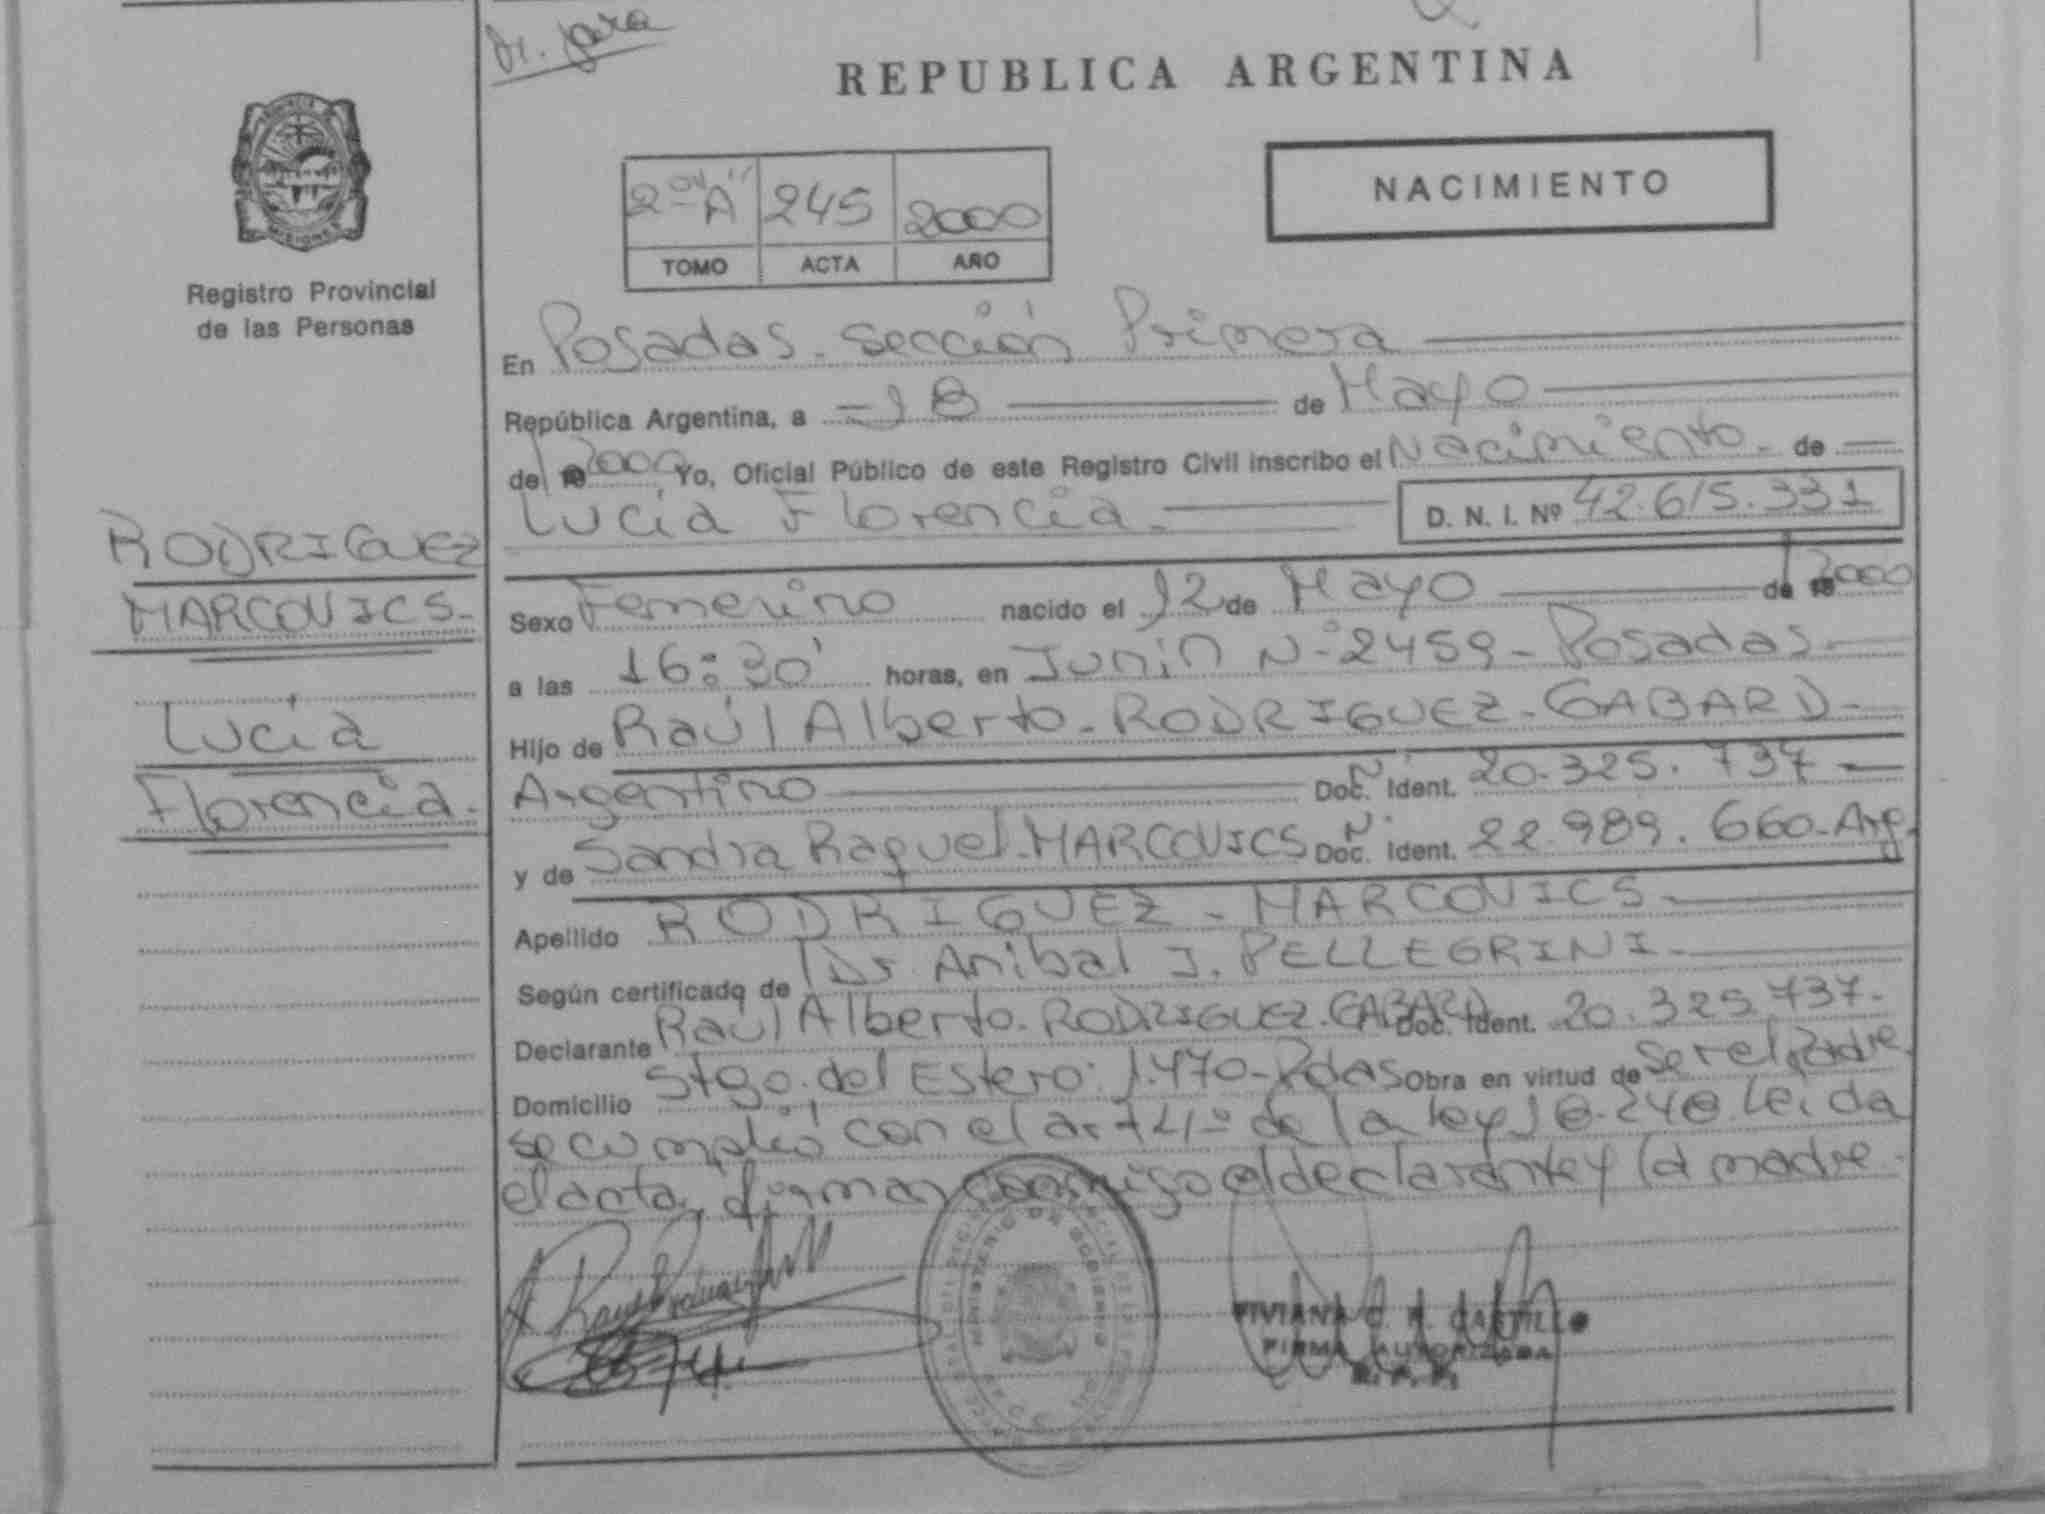 Dr. Jara
REPUBLICA ARGENTINA
PROVINCIA
MISIONES
Registro Provincial
de las Personas
NACIMIENTO
2º "A" 245 2000
TOMO ACTA AÑO
En Posadas - Sección Primera
República Argentina, a - 18 de Mayo
de 19 2000 Yo, Oficial Público de este Registro Civil inscribo el Nacimiento - de
Lucía Florencia. D. N. I. Nº 42.615.331
RODRIGUEZ
MARCOVICS-
Lucía
Florencia.
Sexo Femenino nacido el 12 de Mayo de 19 2000
a las 16:30' horas, en Junín Nº 2459 - Posadas
Hijo de Raúl Alberto - RODRIGUEZ - GABARD -
Argentino Doc. Ident. 20.325.737
y de Sandra Raquel - MARCOVICS Doc. Ident. 22.989.660 - Arg.
Apellido RODRIGUEZ - MARCOVICS
Según certificado de Dr. Anibal J. PELLEGRINI
Declarante Raúl Alberto - RODRIGUEZ - GABARD Doc. Ident. 20.325.737-
Domicilio Stgo. del Estero: 1.470 - Pdas Obra en virtud de ser el Padre
se cumplió con el art 41º de la ley 18.248. Leida
el acta, firman conmigo el declarante y la madre.
MINISTERIO DE GOBIERNO
VIVIANA C. R. CASTILLO
FIRMA AUTORIZADA
R. P. P.